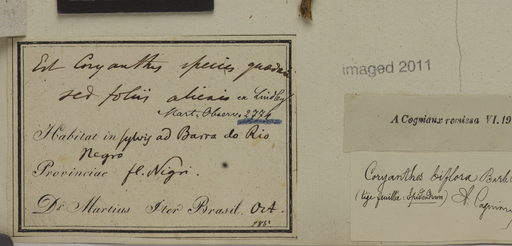 Est Coryanthes species quaedam
sed foliis alienis ex Lindley
Mart. Observ. 2776
Habitat in sylvis ad Barra do Rio
Negro
Provinciae fl. Nigri.
Dr. Martius Iter Brasil. Oct.
imaged 2011
A Cogniaux remissa VI. 19
Coryanthes biflora Barb.
(tige feuillée: Epidendrum) A. Cogniaux